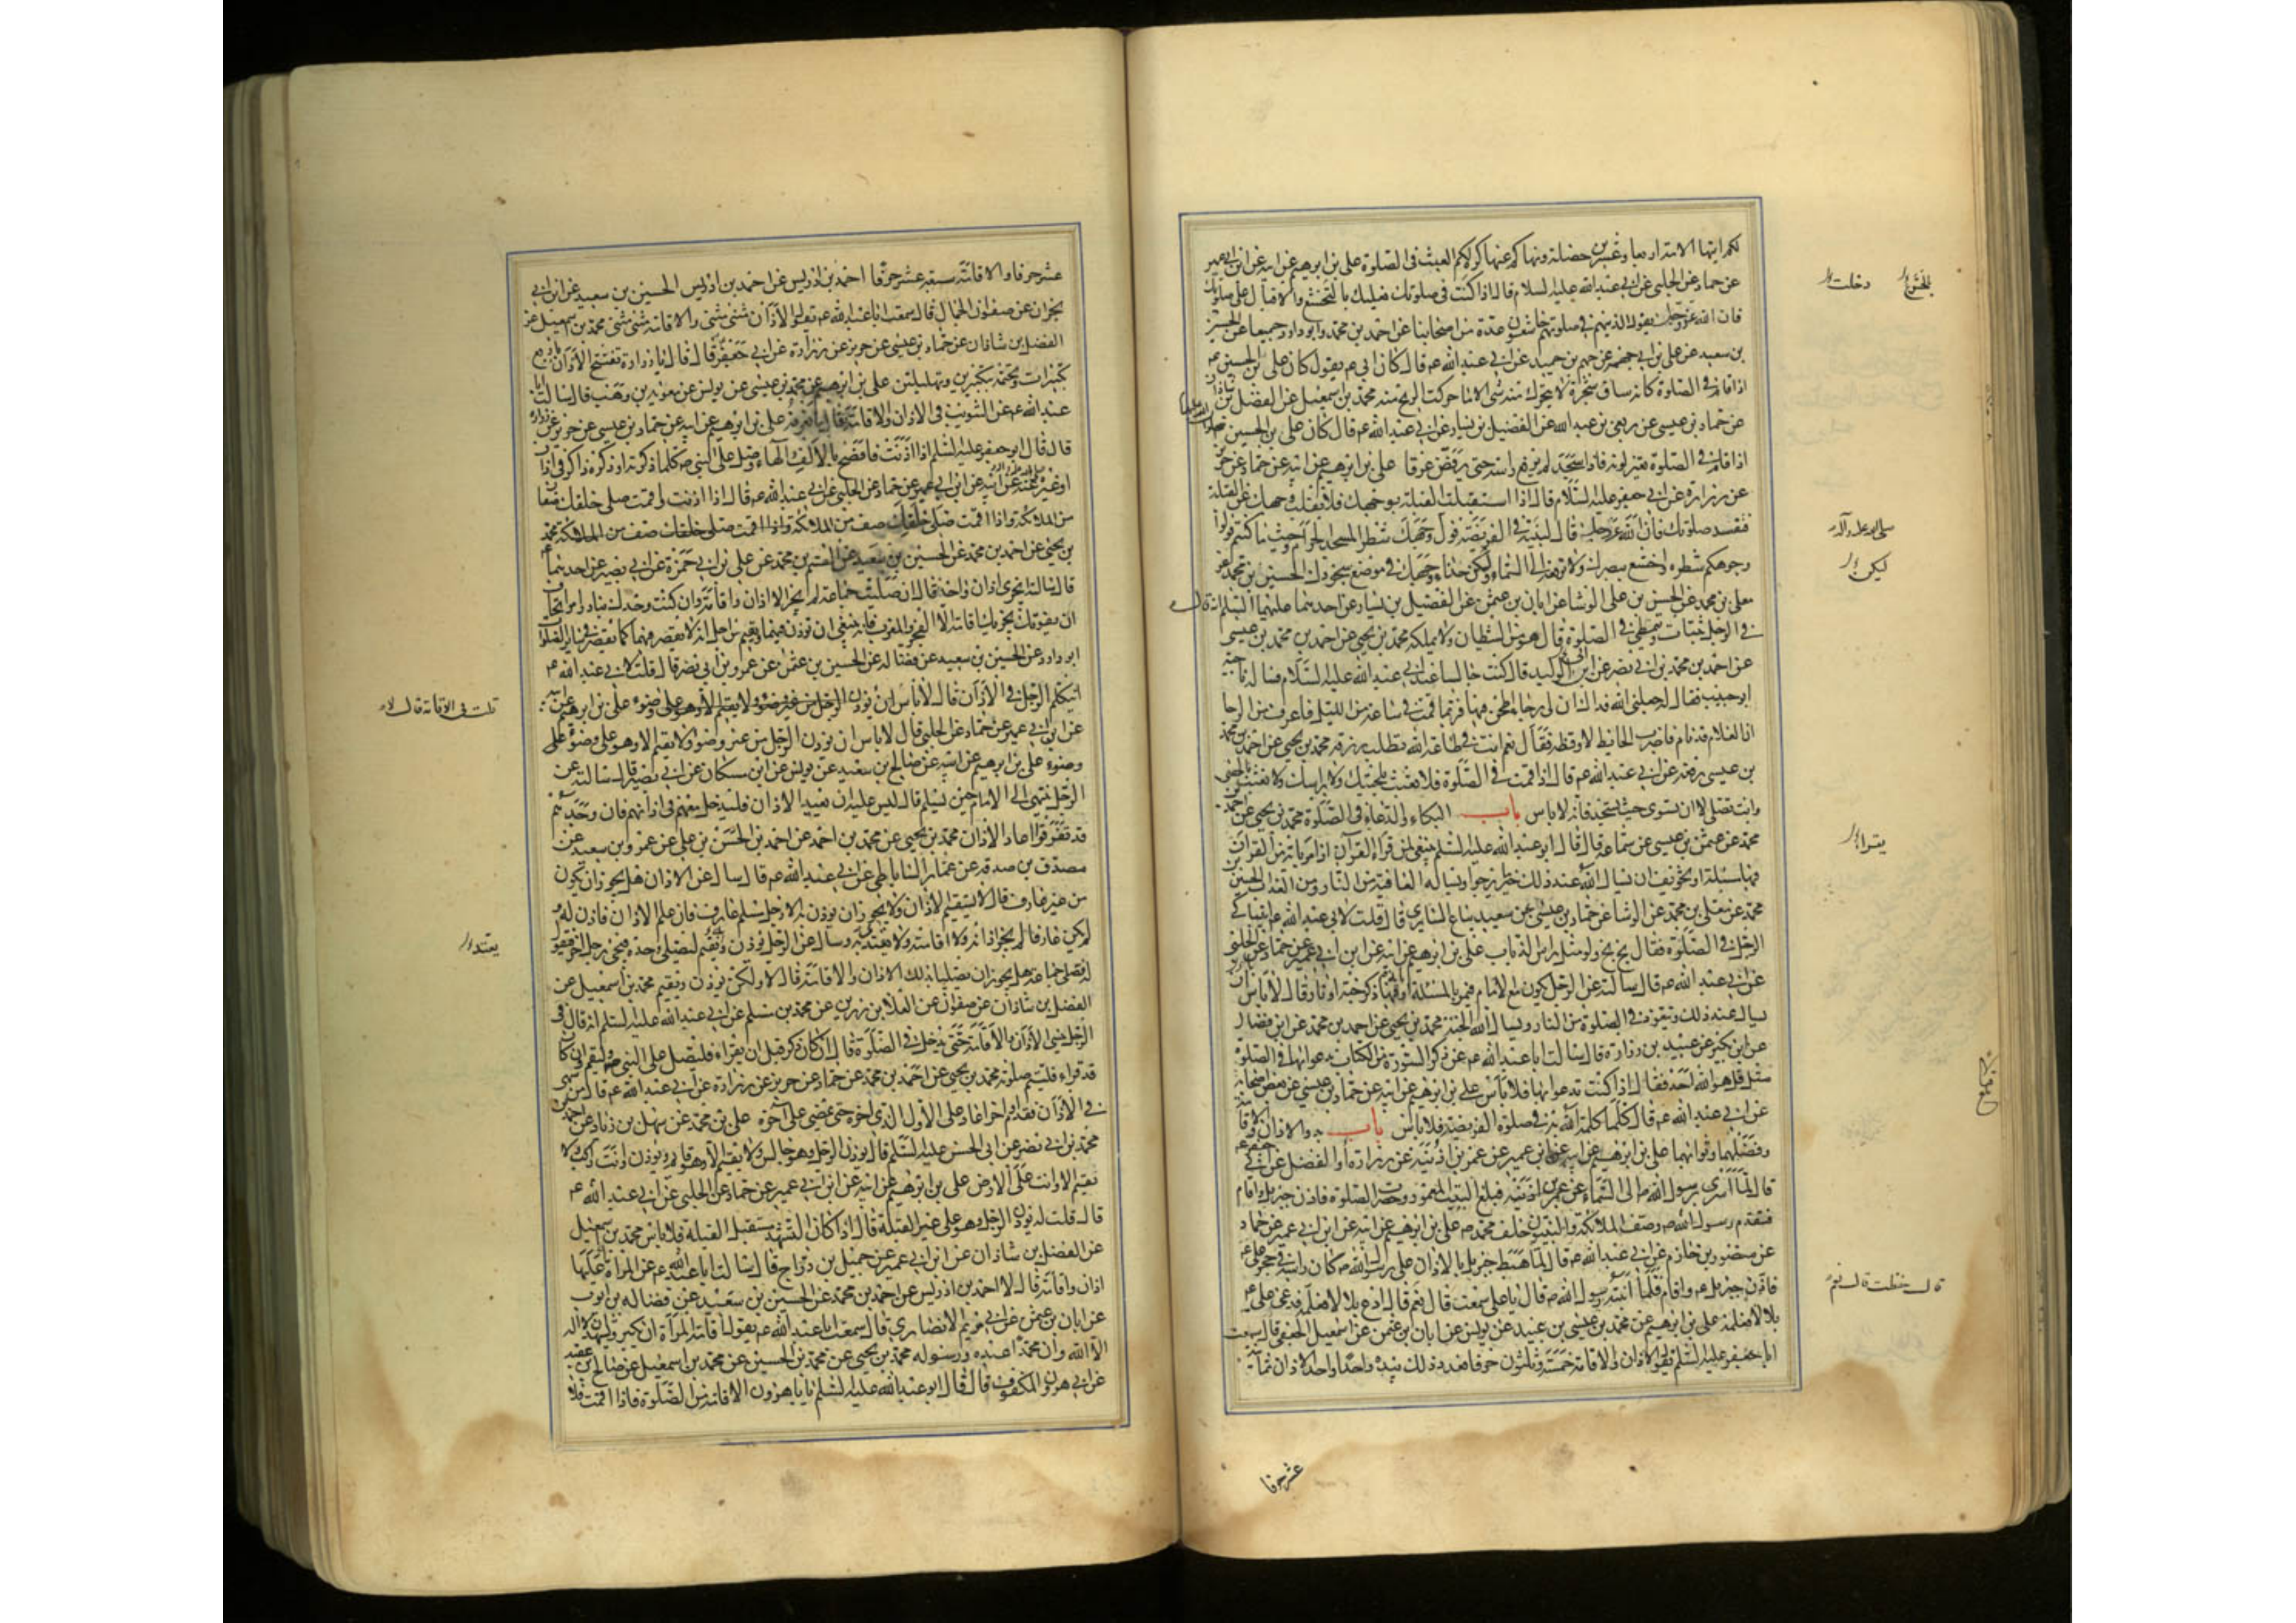 لكم ايتها الامة اربعا وعشرين خصلة ونهاكم عنها كره لكم العبث فى الصلوة على بن ابرهيم عن ابيه عن ابن ابى عمير
عن حماد عن الحلبى عن ابى عبد الله عليه السلام قال اذا كنت فى صلوتك فعليك بالتخشع والاقبال على صلوتك
فان الله عز وجل يقول الذينهم فى صلوتهم خاشعون عدة من اصحابنا عن احمد بن محمد وابو داود جميعا عن الحسين
بن سعيد عن على بن ابى جهمة عن جهم بن حميد عن ابى عبد الله عم قال كان ابى عم يقول كان على بن الحسين عم
اذا قام فى الصلوة كانه ساق شجرة لا يتحرك منه شى الا ما حركت الريح منه محمد بن اسمعيل عن الفضل بن شاذان
عن حماد بن عيسى عن ربعى بن عبد الله عن الفضيل بن يسار عن ابى عبد الله عم قال كان على بن الحسين
اذا قام فى الصلوة تغير لونه فاذا سجد لم يرفع راسه حتى يرفض عرقا على بن ابرهيم عن ابيه عن حماد عن حريز
عن زرارة عن ابى جعفر عليه السلام قال اذا استقبلت القبلة بوجهك فلا تقلب وجهك عن القبلة
فتفسد صلوتك فان الله عز وجل قال لنبيه فى الفريضة فول وجهك شطر المسجد الحرام وحيث ما كنتم فولوا
وجوهكم شطره واخشع ببصرك ولا ترفعه الى السماء ولكن حذاء وجهك فى موضع سجودك الحسين بن محمد عن
معلى بن محمد عن الحسن بن على الوشا عن ابان بن عثمن عن الفضيل بن يسار عن احدهما عليهما السلم انه قال
فى الرجل يتثاب ويتمطى فى الصلوة قال هو من الشيطان ولا يملكه محمد بن يحيى عن احمد بن محمد بن عيسى
عن احمد بن محمد بن ابى نصر عن ابى الوليد قال كنت جالسا عند ابى عبد الله عليه السلام فساله ناجية
ابو حبيب فقال له جعلنى الله فداك ان لى رحا اطحن فيها فربما قمت فى ساعة من الليل فاعرف من الرحا
ان الغلام قد نام فاضرب الحايط لاوقظه فقال نعم انت فى طاعة الله تطلب رزقه محمد بن يحيى عن احمد بن محمد
بن عيسى رفعه عن ابى عبد الله عم قال اذا قمت فى الصلوة فلا تعبث بلحيتك ولا براسك ولا تعبث بالحصى
وانت تصلى الا ان تسوى حيث تسجد فانه لا باس باب البكاء والدعاء فى الصلوة محمد بن يحيى عن احمد بن
محمد عن عثمن بن عيسى عن سماعة قال قال ابو عبد الله عليه السلم ينبغى لمن قراء القرآن اذا مر باية من القرآن
فيها مسئلة او تخويف ان يسال الله عند ذلك خير ما يرجوا ويساله العافية من النار ومن العذاب الحسين بن
محمد عن معلى بن محمد عن الوشا عن حماد بن عيسى عن سعيد بياع السابرى قال قلت لابى عبد الله عم ايتباكى
الرجل فى الصلوة فقال بخ بخ ولو مثل راس الذباب على بن ابرهيم عن ابيه عن ابن ابى عمير عن حماد عن الحلبى
عن ابى عبد الله عم قال سالته عن الرجل يكون مع الامام فيمر بالمسئلة او باية فيها ذكر جنة او نار قال لا باس ان
يسال عند ذلك ويتعوذ فى الصلوة من النار ويسال الله الجنة محمد بن يحيى عن احمد بن محمد عن ابن فضال
عن ابن بكير عن عبيد بن زرارة قال سالت ابا عبد الله عم عن ذكر السورة من الكتاب يدعوا بها فى الصلوة
مثل قل هو الله احد فقال اذا كنت تدعو بها فلا باس على بن ابرهيم عن ابيه عن حماد بن عيسى عن بعض اصحابه
عن ابى عبد الله عم قال كلما كلمت الله به فى صلوة الفريضة فلا باس باب بدو الاذان والاقامة
وفضلهما وثوابهما على بن ابرهيم عن ابيه عن ابن عمير عن عمر بن اذينة عن زرارة او الفضل عن ابى جعفر عم
قال لما اسرى برسول الله ص الى السماء فبلغ البيت المعمور وحضرت الصلوة فاذن جبريل واقام
فتقدم رسول الله ص وصف الملائكة والنبيون خلف محمد ص على بن ابرهيم عن ابيه عن ابن ابى عمير عن حماد
عن منصور بن حازم عن ابى عبد الله عم قال لما هبط جبريل بالاذان على رسول الله ص كان راسه فى حجر على عم
فاذن جبريل عم واقام فلما انتبه رسول الله ص قال يا على سمعت قال نعم قال ادع بلالا فعلمه فدعى على عم
بلالا فعلمه على بن ابرهيم عن محمد بن عيسى بن عبيد عن يونس عن ابان بن عثمن عن اسمعيل الجعفى قال سمعت
ابا جعفر عليه السلم يقول الاذان والاقامة خمسة وثلثون حرفا فعد ذلك بيده واحدا واحدا الاذان ثمانية
عشر حرفا
بالخشوع
دخلت
صلى الله عليه وآله
ليكن
يقرا
قال حفظت قال نعم
عشر حرفا والاقامة سبعة عشر حرفا احمد بن ادريس عن احمد بن ادريس الحسين بن سعيد عن ابن ابى
نجران عن صفوان الجمال قال سمعت ابا عبد الله عم يقول الاذان مثنى مثنى والاقامة مثنى مثنى محمد بن اسمعيل عن
الفضل بن شاذان عن حماد بن عيسى عن حريز عن زرارة عن ابى جعفر قال قال يا زرارة تفتتح الاذان باربع
تكبيرات وتختمه بتكبيرتين وتهليلتين على بن ابرهيم عن محمد بن عيسى عن يونس عن معوية بن وهب قال سالت ابا
عبد الله عم عن التثويب فى الاذان والاقامة فقال ما نعرفه على بن ابرهيم عن ابيه عن حماد بن عيسى عن حريز عن زرارة
قال قال ابو جعفر عليه السلم اذا اذنت فافصح بالالف والهاء وصل على النبى ص كلما ذكرته او ذكره ذاكر فى اذان
او غيره عنه عن ابيه عن ابن ابى عمير عن حماد عن الحلبى عن ابى عبد الله عم قال اذا اذنت واقمت صلى خلفك صفان
من الملائكة واذا اقمت صلى خلفك صف من الملائكة واذا اقمت صلى خلفك صف من الملائكة محمد
بن يحيى عن احمد بن محمد عن الحسين بن سعيد عن القسم بن محمد عن على بن ابى حمزة عن ابى بصير عن احدهما عم
قال سالته ايجزى اذان واحد قال ان صليت جماعة لم يجز الا اذان واقامة وان كنت وحدك تبادر امرا تخاف
ان يفوتك يجزيك اقامة الا الفجر والمغرب فانه ينبغى ان تؤذن فيهما وتقيم من اجل انه لا يقصر فيهما كما تقصر فى ساير الصلوات
ابو داود عن الحسين بن سعيد عن فضالة عن الحسين بن عثمن عن عمرو بن ابى نصر قال قلت لابى عبد الله عم
ايتكلم الرجل فى الاذان قال لا باس ان يؤذن الرجل من غير وضوء ولا يقيم الا وهو على وضوء على بن ابرهيم عن ابيه
عن ابن ابى عمير عن حماد عن الحلبى قال لا باس ان يؤذن الرجل من غير وضوء ولا يقيم الا وهو على وضوء على
وضوء على بن ابرهيم عن ابيه عن صالح بن سعيد عن يونس عن ابن مسكان عن ابى بصير قال سالته عن
الرجل ينتهى الى الامام حين يسلم قال ليس عليه ان يعيد الاذان فليدخل معهم فى اذانهم فان وجدهم
قد تفرقوا اعاد الاذان محمد بن يحيى عن محمد بن احمد عن احمد بن الحسن بن على عن عمرو بن سعيد عن
مصدق بن صدقة عن عمار الساباطى عن ابى عبد الله عم قال سال عن الاذان هل يجوز ان يكون
من غير عارف قال لا يستقيم الاذان ولا يجوز ان يؤذن به الا رجل مسلم عارف فان علم الاذان فاذن به ولم
يكن عارفا لم يجز اذانه ولا اقامته ولا يقتدى به وسال عن الرجل يؤذن ويقيم ليصلى وحده فيجى رجل اخر فيقول
له نصلى جماعة هل يجوز ان يصليا بذلك الاذان والاقامة قال لا ولكن يؤذن ويقيم محمد بن اسمعيل عن
الفضل بن شاذان عن صفوان عن العلا بن رزين عن محمد بن مسلم عن ابى عبد الله عليه السلم انه قال فى
الرجل ينسى الاذان والاقامة حتى يدخل فى الصلوة قال ان كان ذكر قبل ان يقراء فليصل على النبى ص وليقم وان كان
قد قراء فليتم صلوته محمد بن يحيى عن احمد بن محمد عن حماد عن حريز عن زرارة عن ابى عبد الله عم قال من سهى
فى الاذان فقدم او اخر اعاد على الاول الذى اخره حتى يمضى على آخره على بن محمد عن سهل بن زياد عن احمد بن
محمد بن ابى نصر عن ابى الحسن عليه السلم قال يؤذن الرجل وهو جالس ولا يقيم الا وهو قايم ويؤذن وانت راكب ولا
تقيم الا وانت على الارض على بن ابرهيم عن ابيه عن ابن ابى عمير عن حماد عن الحلبى عن ابى عبد الله عم
قال قلت له يؤذن الرجل وهو على غير القبلة قال اذا كان التشهد مستقبل القبلة فلا باس محمد بن اسمعيل
عن الفضل بن شاذان عن ابن ابى عمير عن جميل بن دراج قال سالت ابا عبد الله عم عن المراة عليها
اذان واقامة قال لا احمد بن ادريس عن احمد بن محمد عن الحسين بن سعيد عن فضالة بن ايوب
عن ابان بن عثمن عن ابى مريم الانصارى قال سمعت ابا عبد الله عم يقول اقامة المرأة ان تكبر وتشهد ان لا اله
الا الله وان محمدا عبده ورسوله محمد بن يحيى عن محمد بن الحسين عن محمد بن اسمعيل عن صالح بن عقبة
عن ابى هرون المكفوف قال قال ابو عبد الله عليه السلم يا ابا هرون الاقامة من الصلوة فاذا اقمت فلا
قلت فى الاقامة قال لا
يعتد